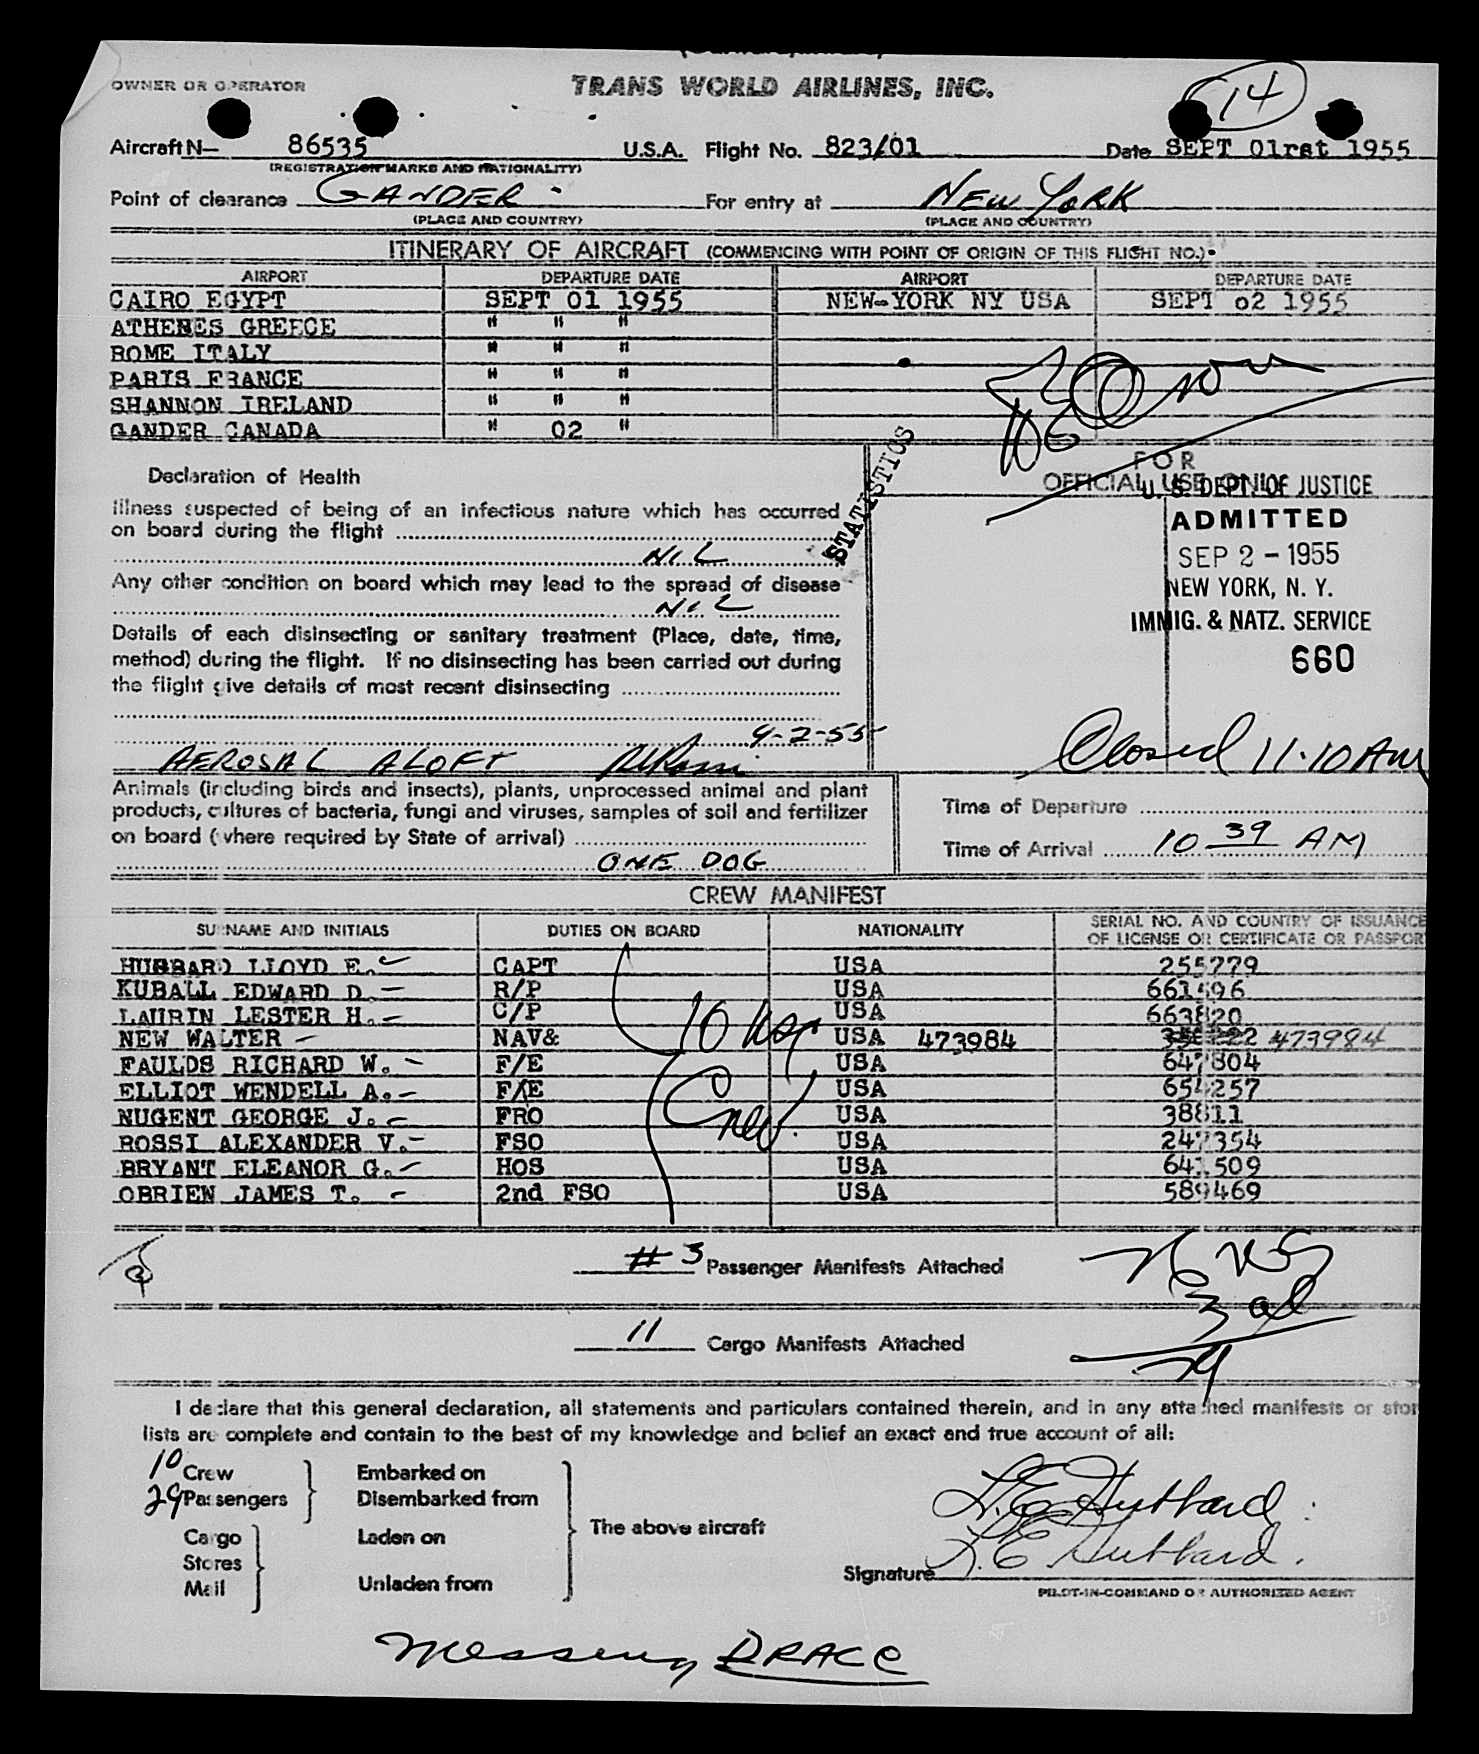 OWNER OR OPERATOR
TRANS WORLD AIRLINES, INC.
14
Aircraft N— 86535 U.S.A. Flight No. 823/01 Date SEPT 01rst 1955
(REGISTRATION MARKS AND NATIONALITY)
Point of clearance GANDER For entry at NEW YORK
(PLACE AND COUNTRY) (PLACE AND COUNTRY)
ITINERARY OF AIRCRAFT (COMMENCING WITH POINT OF ORIGIN OF THIS FLIGHT NO.)
AIRPORT DEPARTURE DATE AIRPORT DEPARTURE DATE
CAIRO EGYPT SEPT 01 1955 NEW-YORK NY USA SEPT 02 1955
ATHENES GREECE " " "
ROME ITALY " " "
PARIS FRANCE " " "
SHANNON IRELAND " " "
GANDER CANADA " 02 "
STATISTICS
Declaration of Health
FOR
OFFICIAL USE ONLY
U. S. DEPT. OF JUSTICE
ADMITTED
SEP 2 - 1955
NEW YORK, N. Y.
IMMIG. & NATZ. SERVICE
660
Illness suspected of being of an infectious nature which has occurred
on board during the flight
NIL
Any other condition on board which may lead to the spread of disease
NIL
Details of each disinsecting or sanitary treatment (Place, date, time,
method) during the flight. If no disinsecting has been carried out during
the flight give details of most recent disinsecting
9-2-55
AEROSAL ALOFT
Closed 11:10 AM
Animals (including birds and insects), plants, unprocessed animal and plant
products, cultures of bacteria, fungi and viruses, samples of soil and fertilizer
on board (where required by State of arrival)
ONE DOG
Time of Departure
Time of Arrival 10 39 AM
CREW MANIFEST
SURNAME AND INITIALS DUTIES ON BOARD NATIONALITY SERIAL NO. AND COUNTRY OF ISSUANCE
OF LICENSE OR CERTIFICATE OR PASSPORT
HUBBARD LLOYD E. CAPT USA 255779
KUBALL EDWARD D. R/P USA 661596
LAURIN LESTER H. C/P USA 663820
NEW WALTER NAV& USA 473984 473984
FAULDS RICHARD W. F/E USA 647804
ELLIOT WENDELL A. F/E USA 654257
NUGENT GEORGE J. FRO USA 38811
ROSSI ALEXANDER V. FSO USA 247354
BRYANT ELEANOR G. HOS USA 641509
OBRIEN JAMES T. 2nd FSO USA 589469
10
Crew
# 3 Passenger Manifests Attached
11 Cargo Manifests Attached
I declare that this general declaration, all statements and particulars contained therein, and in any attached manifests or stor
lists are complete and contain to the best of my knowledge and belief an exact and true account of all:
10 Crew Embarked on
29 Passengers Disembarked from
The above aircraft
Cargo Laden on
Stores
Mail Unladen from
L. E. Hubbard
Signature L. E. Hubbard
PILOT-IN-COMMAND OR AUTHORIZED AGENT